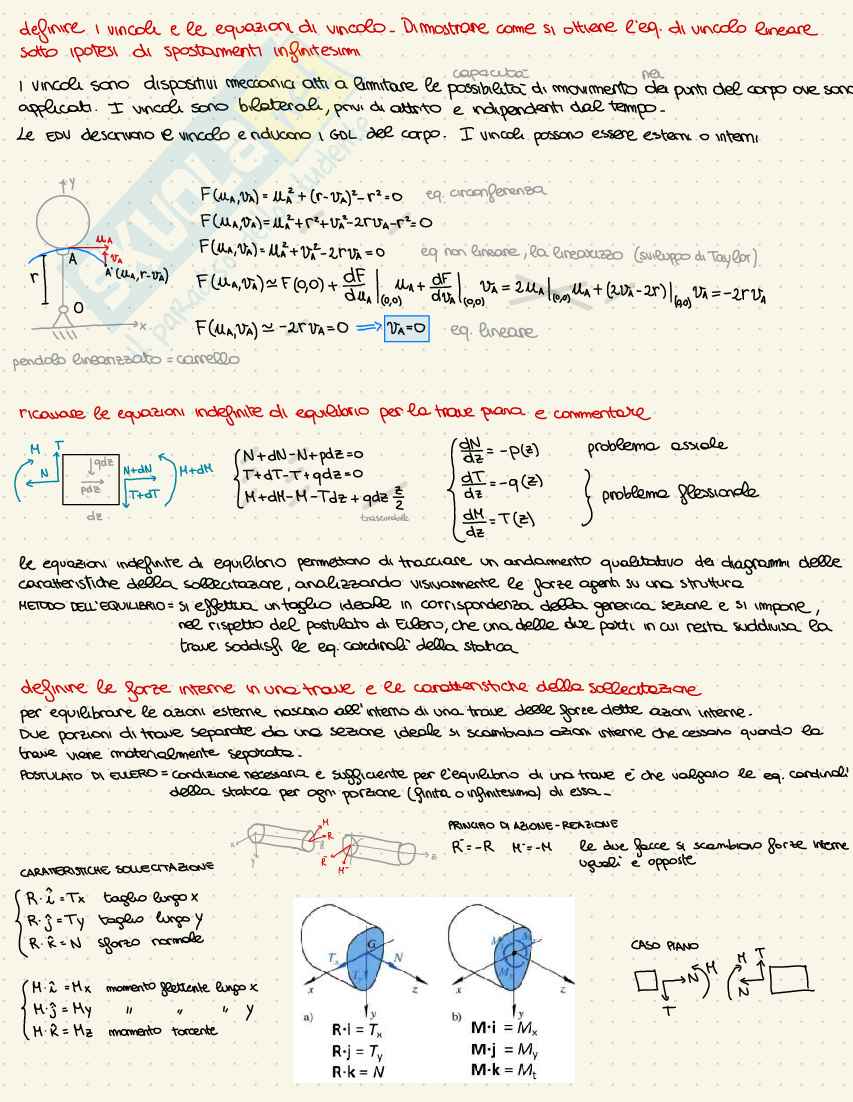 definire i vincoli e le equazioni di vincolo. Dimostrare come si ottiene l'eq. di vincolo lineare
sotto ipotesi di spostamenti infinitesimi
I vincoli sono dispositivi meccanici atti a limitare le possibilità di movimento dei punti del corpo ove sono
capacità nei
applicati. I vincoli sono bilaterali, privi di attrito e indipendenti dal tempo.
Le EDV descrivono il vincolo e riducono i GDL del corpo. I vincoli possono essere esterni o interni
y
F(uA,vA) = uA² + (r-vA)² - r² = 0 eq. circonferenza
F(uA,vA) = uA² + r² + vA² - 2rvA - r² = 0
uA
vA
A
A'(uA, r-vA)
F(uA,vA) = uA² + vA² - 2rvA = 0 eq non lineare, la linearizzo (sviluppo di Taylor)
r
F(uA,vA) ≃ F(0,0) + dF/duA |(0,0) uA + dF/dvA |(0,0) vA = 2uA|(0,0) uA + (2vA-2r)|(0,0) vA = -2rvA
O
x
F(uA,vA) ≃ -2rvA = 0 ⟹ vA=0 eq. lineare
pendolo linearizzato = carrello
SKUOLA
ricavare le equazioni indefinite di equilibrio per la trave piana e commentare
M T N qdz pdz N+dN T+dT M+dM
dz
N+dN-N+pdz=0
T+dT-T+qdz=0
M+dM-M-Tdz+qdz z/2
trascurabile
dN/dz = -p(z) problema assiale
dT/dz = -q(z)
dM/dz = T(z)
problema flessionale
le equazioni indefinite di equilibrio permettono di tracciare un andamento qualitativo dei diagrammi delle
caratteristiche della sollecitazione, analizzando visivamente le forze agenti su una struttura
METODO DELL'EQUILIBRIO = si effettua un taglio ideale in corrispondenza della generica sezione e si impone,
nel rispetto del postulato di Eulero, che una delle due parti in cui resta suddivisa la
trave soddisfi le eq. cardinali della statica
definire le forze interne in una trave e le caratteristiche della sollecitazione
per equilibrare le azioni esterne nascono all'interno di una trave delle forze dette azioni interne.
Due porzioni di trave separate da una sezione ideale si scambiano azioni interne che cessano quando la
trave viene materialmente separata.
POSTULATO DI EULERO = condizione necessaria e sufficiente per l'equilibrio di una trave è che valgano le eq. cardinali
della statica per ogni porzione (finita o infinitesima) di essa.
x y z M R R⁻ M⁻ z
PRINCIPIO DI AZIONE-REAZIONE
R⁻=-R M⁻=-M le due facce si scambiano forze interne
uguali e opposte
CARATTERISTICHE SOLLECITAZIONE
R·î = Tx taglio lungo x
R·ĵ = Ty taglio lungo y
R·k̂ = N sforzo normale
M·î = Mx momento flettente lungo x
M·ĵ = My " " " y
M·k̂ = Mz momento torcente
G Tx Ty N x z y
a)
R·i = Tx
R·j = Ty
R·k = N
x z y
b)
M·i = Mx
M·j = My
M·k = Mt
CASO PIANO
N M T M T N